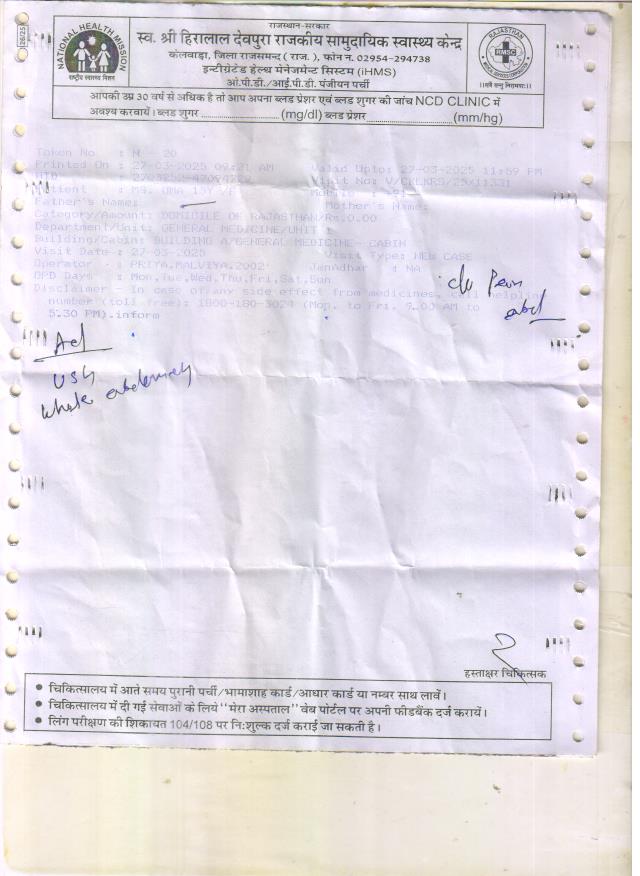 26/25
NATIONAL HEALTH MISSION
राष्ट्रीय स्वास्थ्य मिशन
राजस्थान-सरकार
स्व. श्री हिरालाल देवपुरा राजकीय सामुदायिक स्वास्थ्य केन्द्र
केलवाड़ा, जिला राजसमन्द ( राज. ), फोन नं. 02954-294738
इन्टीग्रेटेड हेल्थ मेनेजमेन्ट सिस्टम (iHMS)
ओ.पी.डी./आई.पी.डी. पंजीयन पर्ची
RAJASTHAN
RMSC
MEDICAL SERVICES CORPORATION
॥सर्वे सन्तु निरामयाः॥
आपकी उम्र 30 वर्ष से अधिक है तो आप अपना ब्लड प्रेशर एवं ब्लड शुगर की जांच NCD CLINIC में
अवश्य करवायें। ब्लड शुगर (mg/dl) ब्लड प्रेशर (mm/hg)
Token No : M - 20
Printed On : 27-03-2025 09:21 AM Valid Upto: 27-03-2025 11:59 PM
Visit No:
Patient : MS. UMA 15Y /F
Father's Name: Mother's Name:
Category/Amount: DOMICILE OF RAJASTHAN/Rs.0.00
Department/Unit: GENERAL MEDICINE/UNIT
Building/Cabin: BUILDING A/GENERAL MEDICINE- CABIN
Visit Date : 27-03-2025 Visit Type: NEW CASE
Operator : PRIYA.MALVIYA.2002 JanAdhar : NA
OPD Days : Mon,Tue,Wed,Thu,Fri,Sat,Sun
Disclaimer - In case of any side effect from medicines, call helpline
number (toll free): 1800-180-3024 (Mon. to Fri. 9.00 AM to
5.30 PM).inform
c/o Pain
abd
Ad
USG
whole abdomen
हस्ताक्षर चिकित्सक
• चिकित्सालय में आते समय पुरानी पर्ची/भामाशाह कार्ड/आधार कार्ड या नम्बर साथ लावें।
• चिकित्सालय में दी गई सेवाओं के लिये "मेरा अस्पताल" वेब पोर्टल पर अपनी फीडबैंक दर्ज करायें।
• लिंग परीक्षण की शिकायत 104/108 पर निःशुल्क दर्ज कराई जा सकती है।